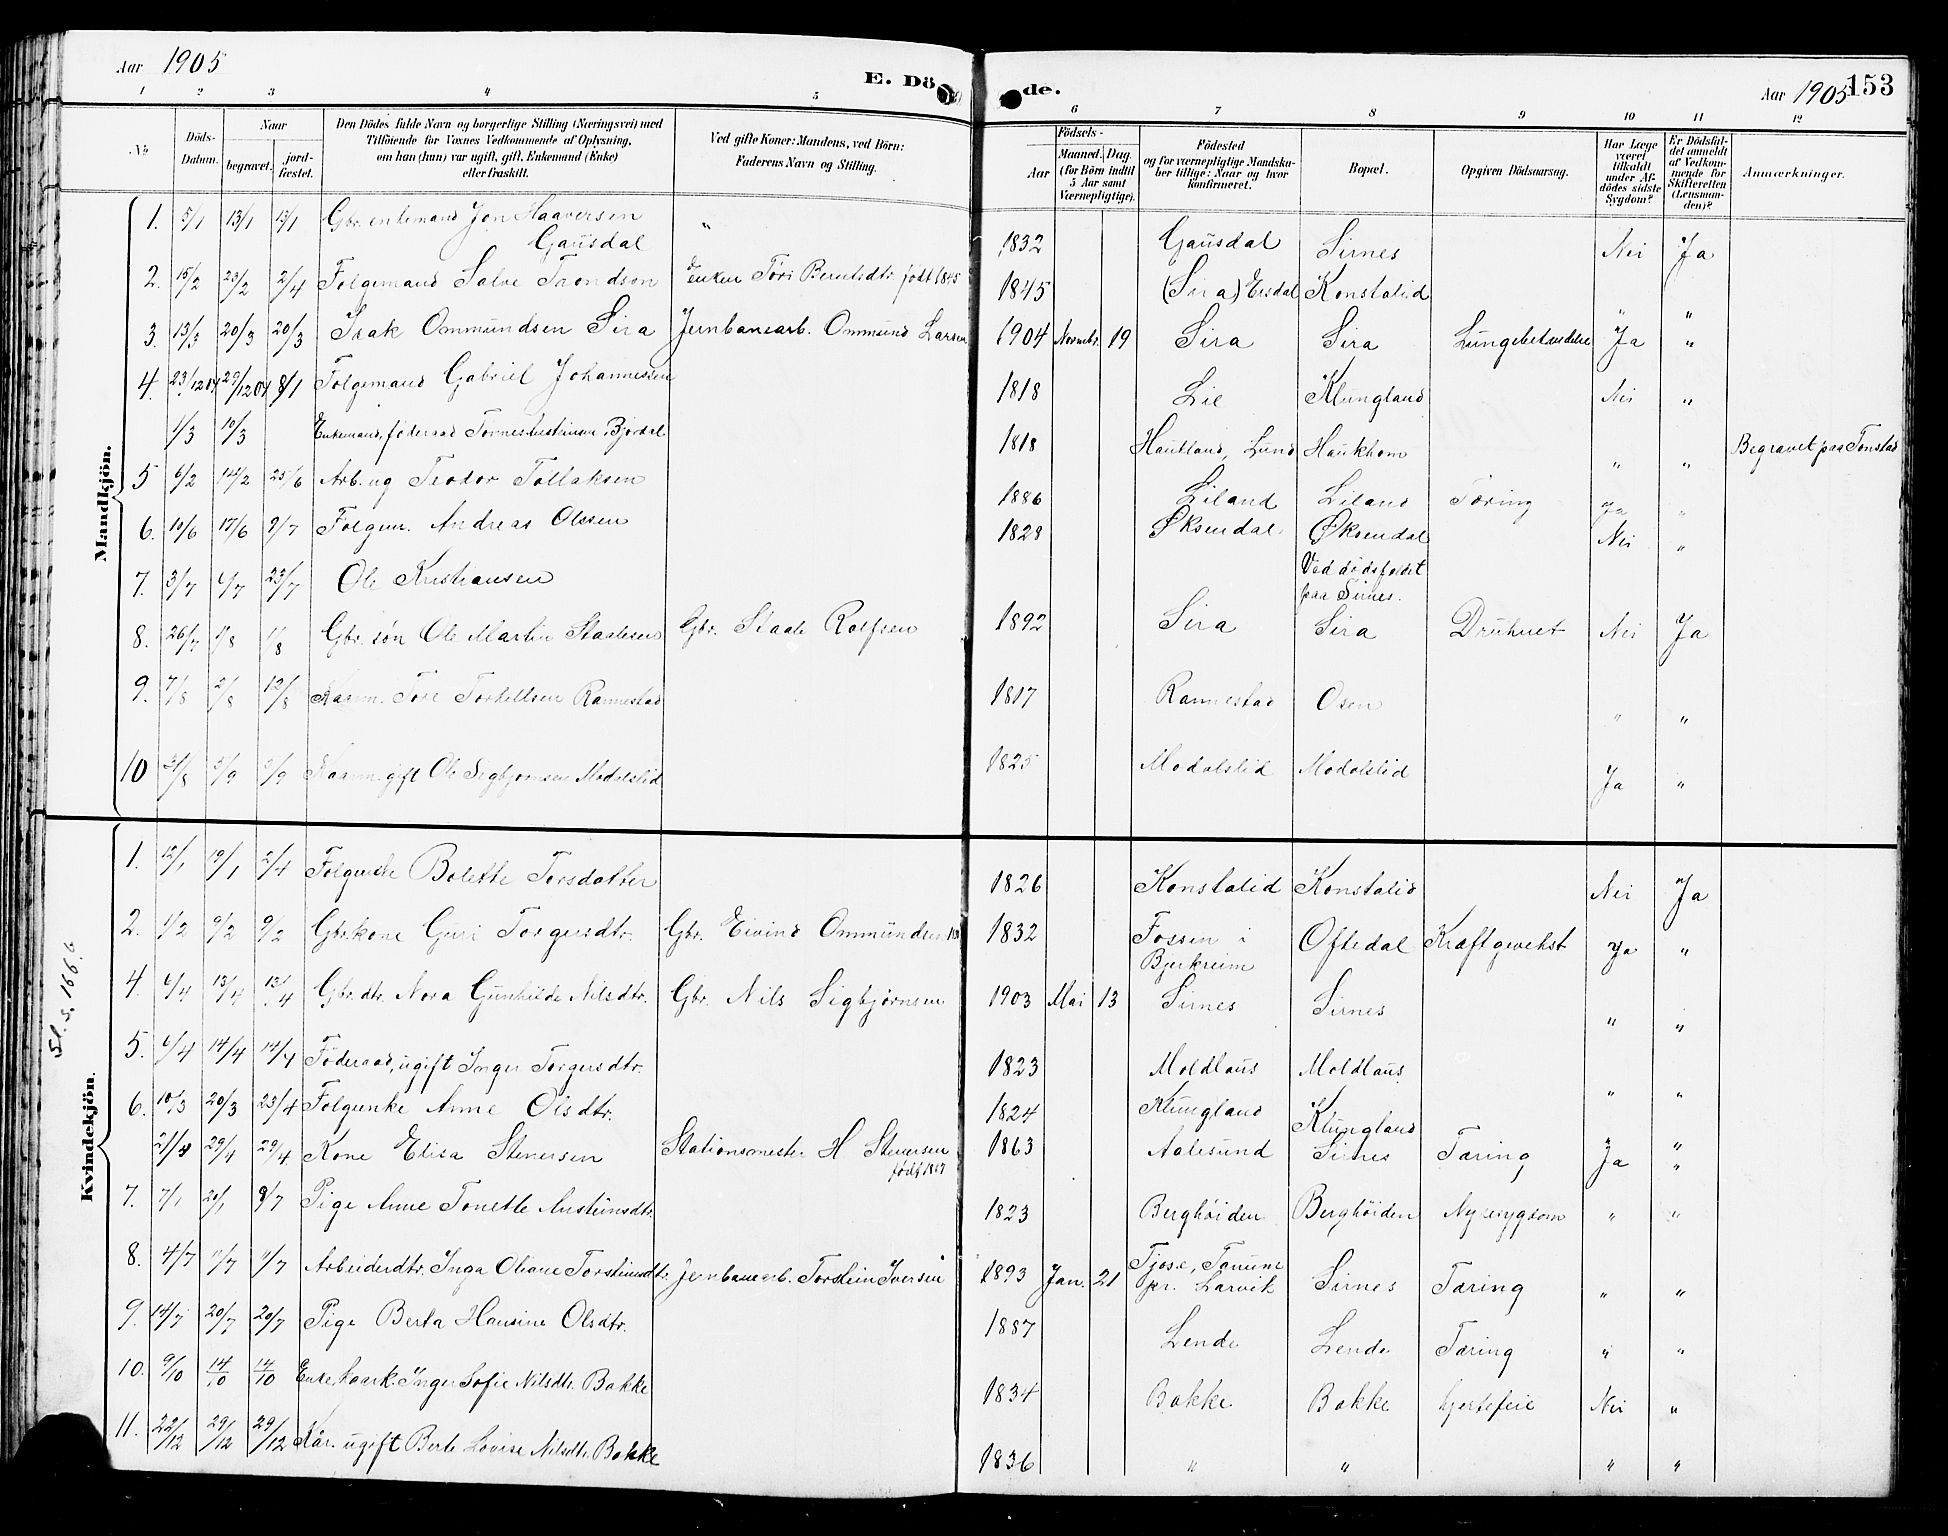 Aar 1905
E. Döde.
Aar 1905 153
1 2 3 4 5 6 7 8 9 10 11 12
No
Döds-Datum.
Naar
begravet.
jord-fæstet.
Den Dödes fulde Navn og borgerlige Stilling (Næringsvei) med
Tilföiende for Voxnes Vedkommende af Oplysning,
om han (hun) var ugift, gift, Enkemand (Enke)
eller fraskilt.
Ved gifte Koner: Mandens, ved Börn:
Faderens Navn og Stilling.
Födsels-
Aar
Maaned. Dag.
(for Börn indtil
5 Aar samt
Værnepligtige).
Födested
og for værnepligtige Mandska-
ber tillige: Naar og hvor
konfirmeret.
Bopæl.
Opgiven Dödsaarsag.
Har Læge
været
tilkaldt
under Af-
dödes sidste
Sygdom?
Er Dödsfal-
det anmeldt
af Vedkom-
mende for
Skifteretten
(Lensman-
den)?
Anmærkninger.
Mandkjön.
1. 5/1 13/1 13/1 Gbr. enkemand Jon Haaversen Gausdal " 1832 Gausdal Sirnes Nei Ja
2. 15/2 23/2 2/4 Folgemand Salve Trondsen Enken Töri Berntsdtr. født 1845 1845 (Sira) Ersdal Konstalid " "
3. 13/3 20/3 20/3 Isak Ommundsen Sira Jernbanearb. Ommund Larsen 1904 Novmbr. 19 Sira Sira Lungebetændelse Ja "
4. 23/12 04 29/12 04 8/1 Folgemand Gabriel Johannessen 1818 Lie Klungland Nei "
1/3 10/3 Enkemand, föderaad Bjordal 1818 Hautland, Lund Haukhom " " Begravet paa Tonstad
5 6/2 14/2 25/6 Arb. ug Teodor Tollaksen 1886 Liland Liland Tæring Ja "
6. 10/6 17/6 9/7 Folgem. Andreas Olssen 1828 Øksendal Øksendal Nei "
7. 3/7 6/7 23/7 Ole Kristiansen Ved dødsfaldet paa Sirnes.
8. 26/7 1/8 1/8 Gbr. søn Ole Martin Staalesen Gbr. Staale Rolfsen 1892 Sira Sira Druknet Nei Ja
9. 7/8 12/8 Kaarm. Tore Torkellsen Rannestad 1817 Rannestad Osen " "
10 31/8 5/9 5/9 Kaarm. gift Ole Sigbjørnsen Modalslid 1825 Modalslid Modalslid Ja "
Kvindekjön.
Sl. s. 166.
1. 12/1 19/1 2/4 Folgenke Bolette Torsdatter 1826 Konstalid Konstalid Nei Ja
2. 1/2 9/2 9/2 Gbrkone Guri Torgersdtr. Gbr. Eivind Ommundsen 1832 Fossen i Bjerkreim Oftedal Kræftgevekst Ja "
4. 6/4 13/4 13/4 Gbr. dtr. Nora Gunhilde Nilsdtr. Gbr. Nils Sigbjørnsen 1903 Mai 13 Sirnes Sirnes " "
5. 6/4 14/4 14/4 Föderaad, ugift Inger Torgersdtr. 1823 Moldlaus Moldlaus " "
6. 10/3 20/3 23/4 Folgenke Anne Olsdtr. 1824 Klungland Klungland " "
21/4 29/4 29/4 Kone Elisa Stenersen Stationsmester H Stenersen født 1867 1863 Aalesund Sirnes Tæring Ja "
7. 7/1 20/1 9/7 Pige Anne Tonette Austeinsdtr. 1823 Berghöiden Berghöiden Nyresygdom " "
8. 4/7 11/7 11/7 Arbeiderdtr. Inga Oliane Torsteinsdtr. Jernbanearb. Torstein Iversen 1893 Jan. 21 Tjøse, Tanum pr. Larvik Sirnes Tæring " "
9. 14/7 20/7 20/7 Pige Berta Hansine Olsdtr. 1887 Lende Lende Tæring " "
10. 9/10 14/10 14/10 Enke, kaark. Inger Sofie Nilsdtr. Bakke 1834 Bakke Bakke hjertefeil Nei "
11. 22/12 29/12 29/12 Kår. ugift Berte Lovise Nilsdtr. Bakke 1836 " " " "